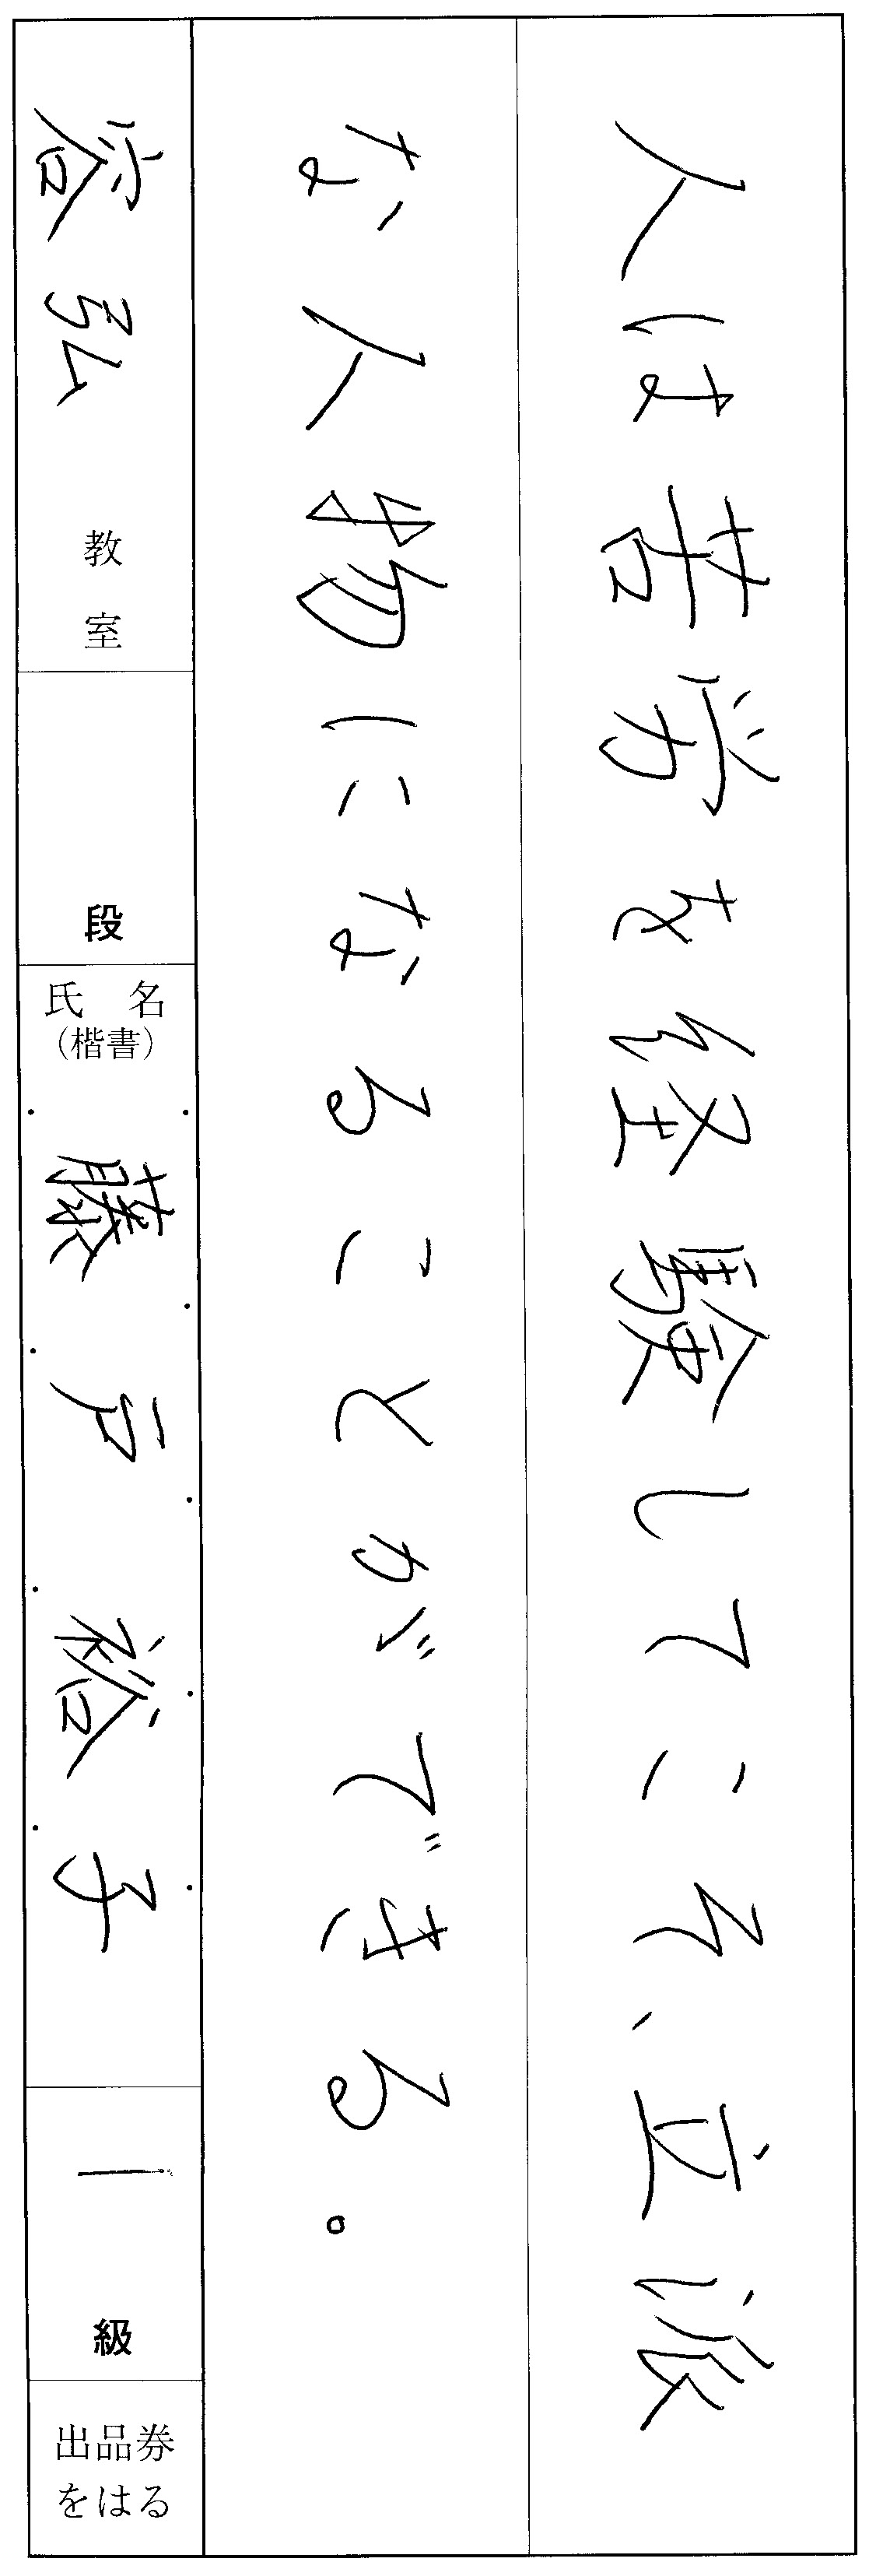 人は苦労を経験してこそ、立派
な人物になることができる。
容弘 教室
段
氏名
(楷書)
藤戸 裕子
一 級
出品券
をはる